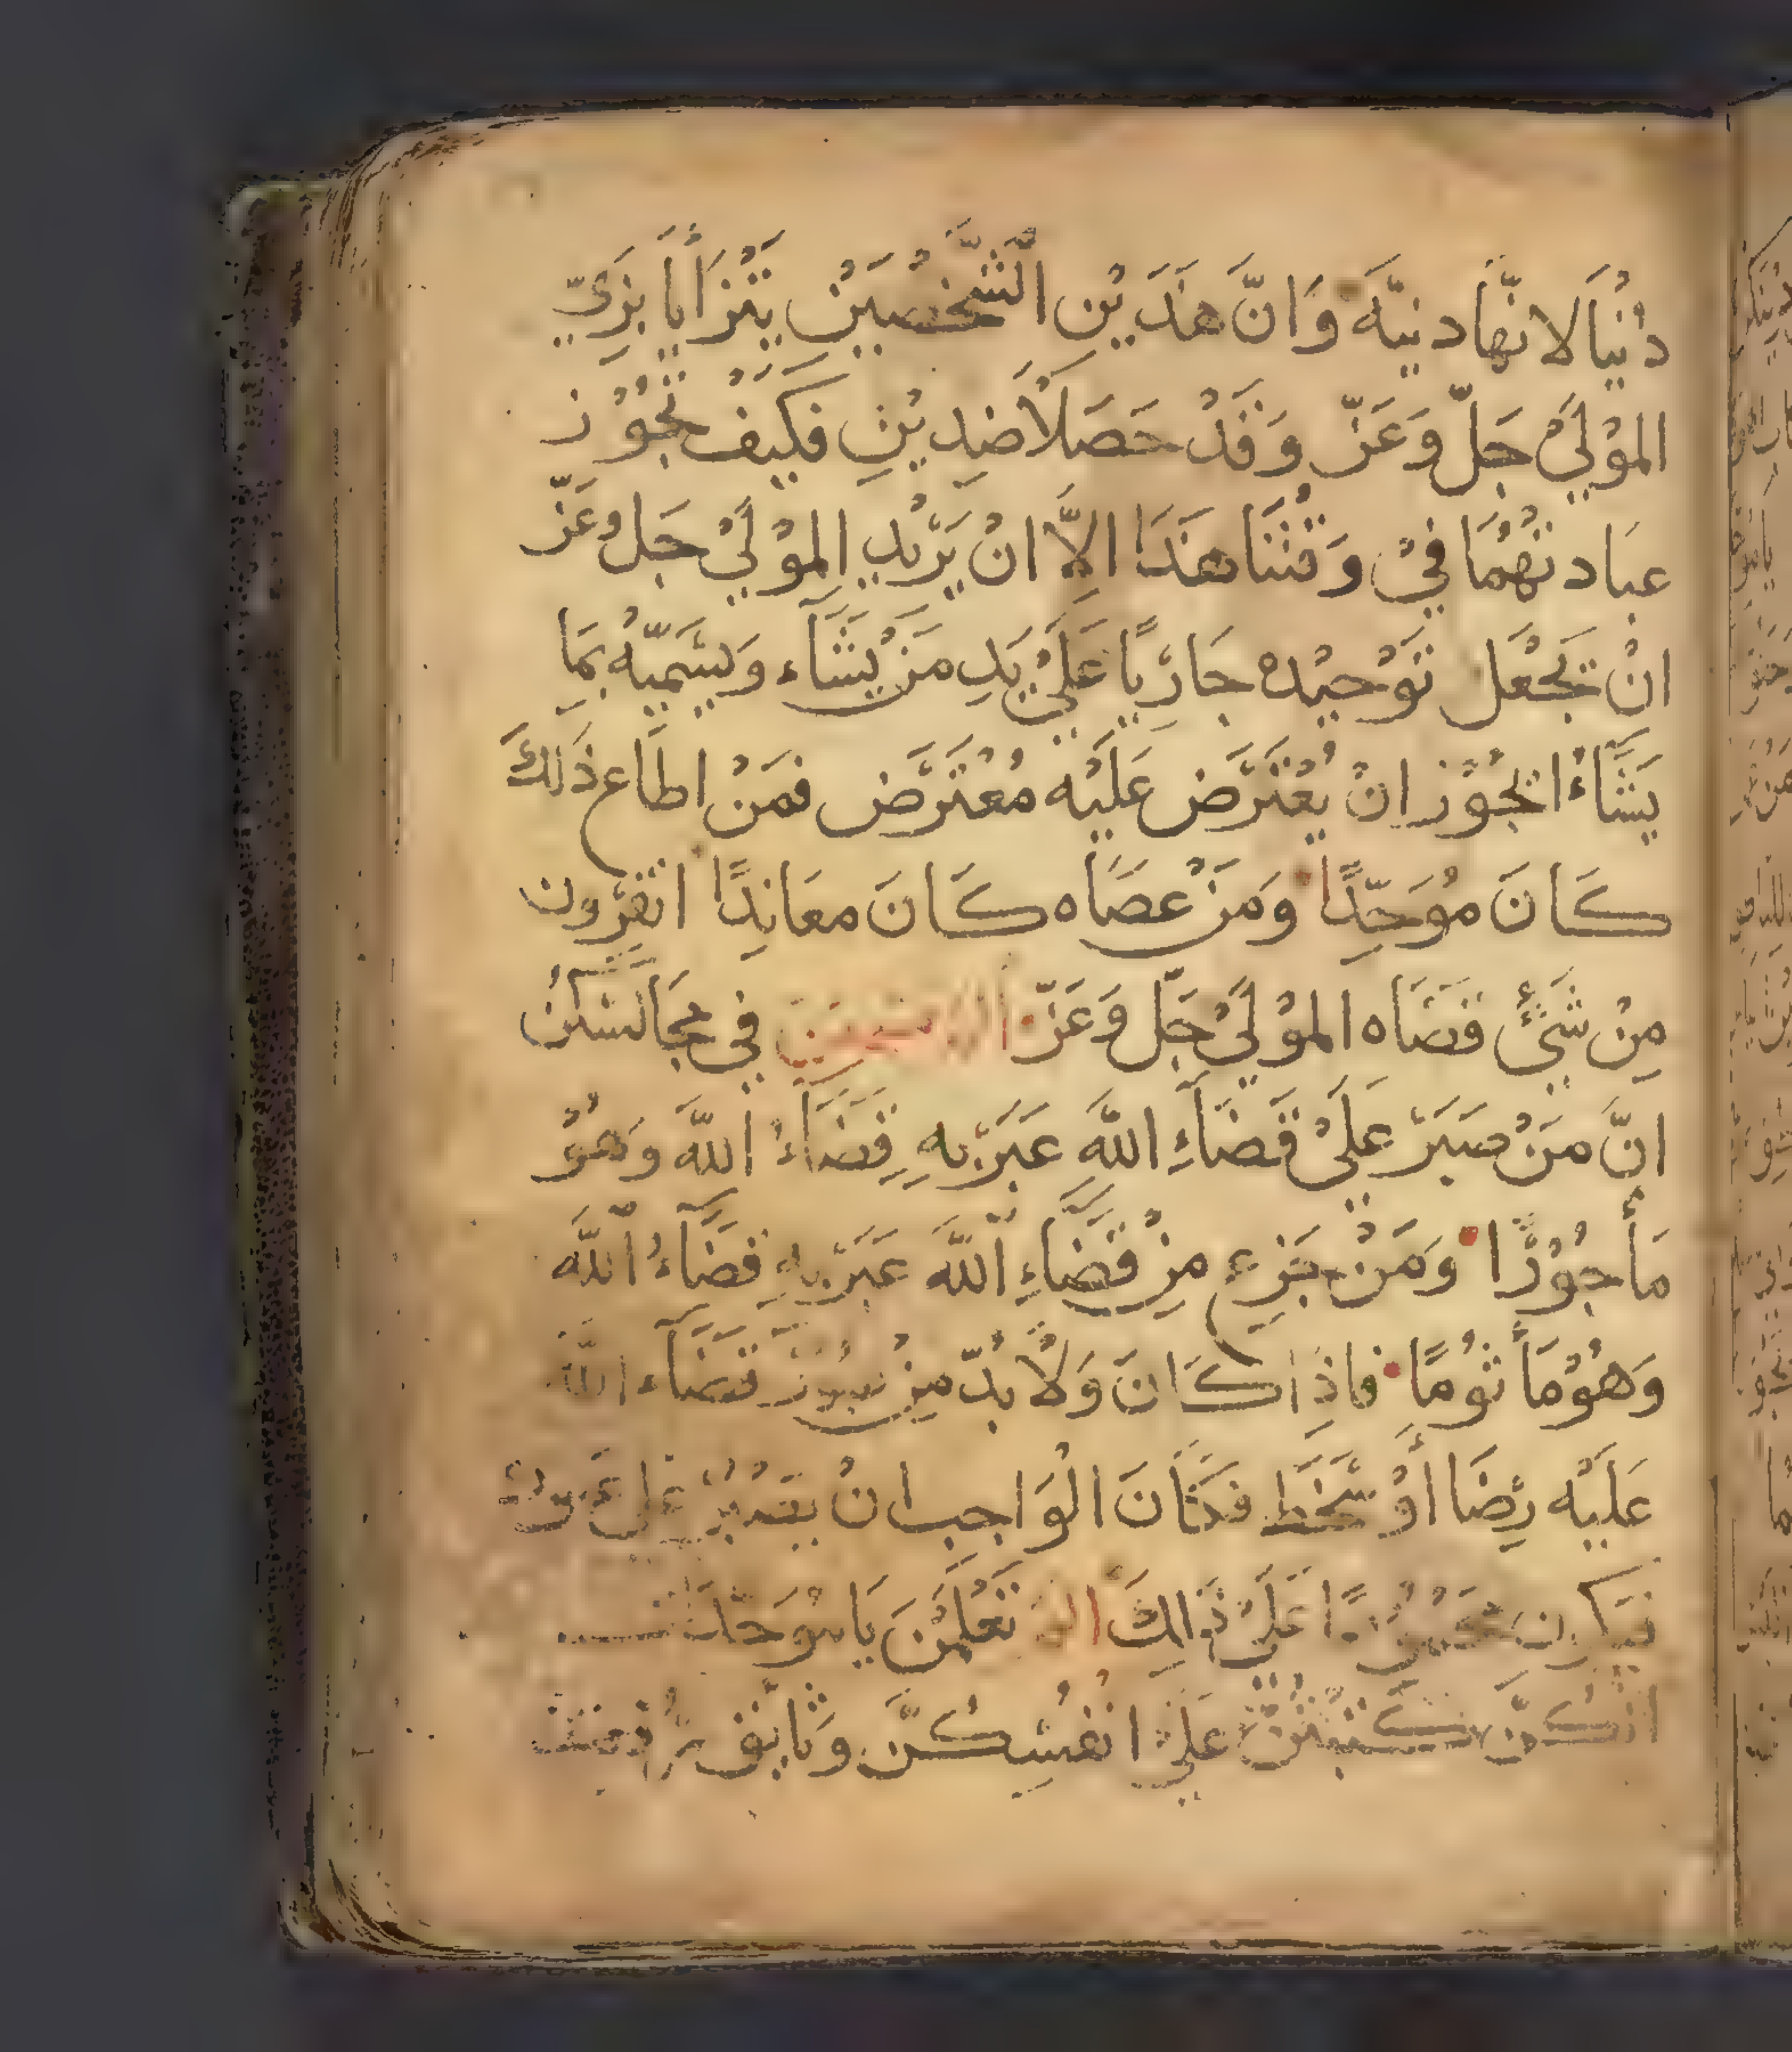 دُنْيَا لانّهَا دنيَّه وَانَّ هذَيْن الشَّخْصَيْن يَتْزَأيَا بِزَيّ
الموْليْ جَلّ وَعَزّ وَقَدْ حَصَلاَ ضِديْنِ فكَيف تجُوْز
عبَادتهُمَا فيْ وَقتنَا هذَا الاَّ انْ يَرْيد الموْليْ جَل وعَزّ
انْ يجْعَل توْحيْده جَارِيًا عَليْ يَد مَنْ يشَآء وَيسَميّهُ بمَا
يشَآءُ ايجُوْز انْ يُعْترَض عَليْه مُعْترَض فمَنْ اطَاع ذَلكَ
كَانَ مُوَحِّدًا وَمَنْ عصَاه كَانَ معَاندًا اتفِرّون
مِنْ شَيْئٍ قضَاه الموْليْ جَلّ وَعَزّ في مجَالسكُن
انَّ مَنْ صبَرَ عَليْ قضَآءِ اللهِ عَبَرَ بهِ قضَآءُ اللهَ وَهُوْ
مَأجُوْرًا وَمَنْ جَزِع مِنْ قضَآءِ اللهَ عَبَرَ بهِ قضَآءُ الله
وَهُوْ مَأثُومًا فاذِا كَانَ وَلاَ بُدّ مِنْ قضَآء الله
عَليْه رِضَا أوْ سَخَط فكَانَ الوَاجب انْ
عَليْ ذَالكَ تعْلمْنَ يَا مُوَحدَات
انكُنّ عَليْ انفُسِكُنَّ وَ